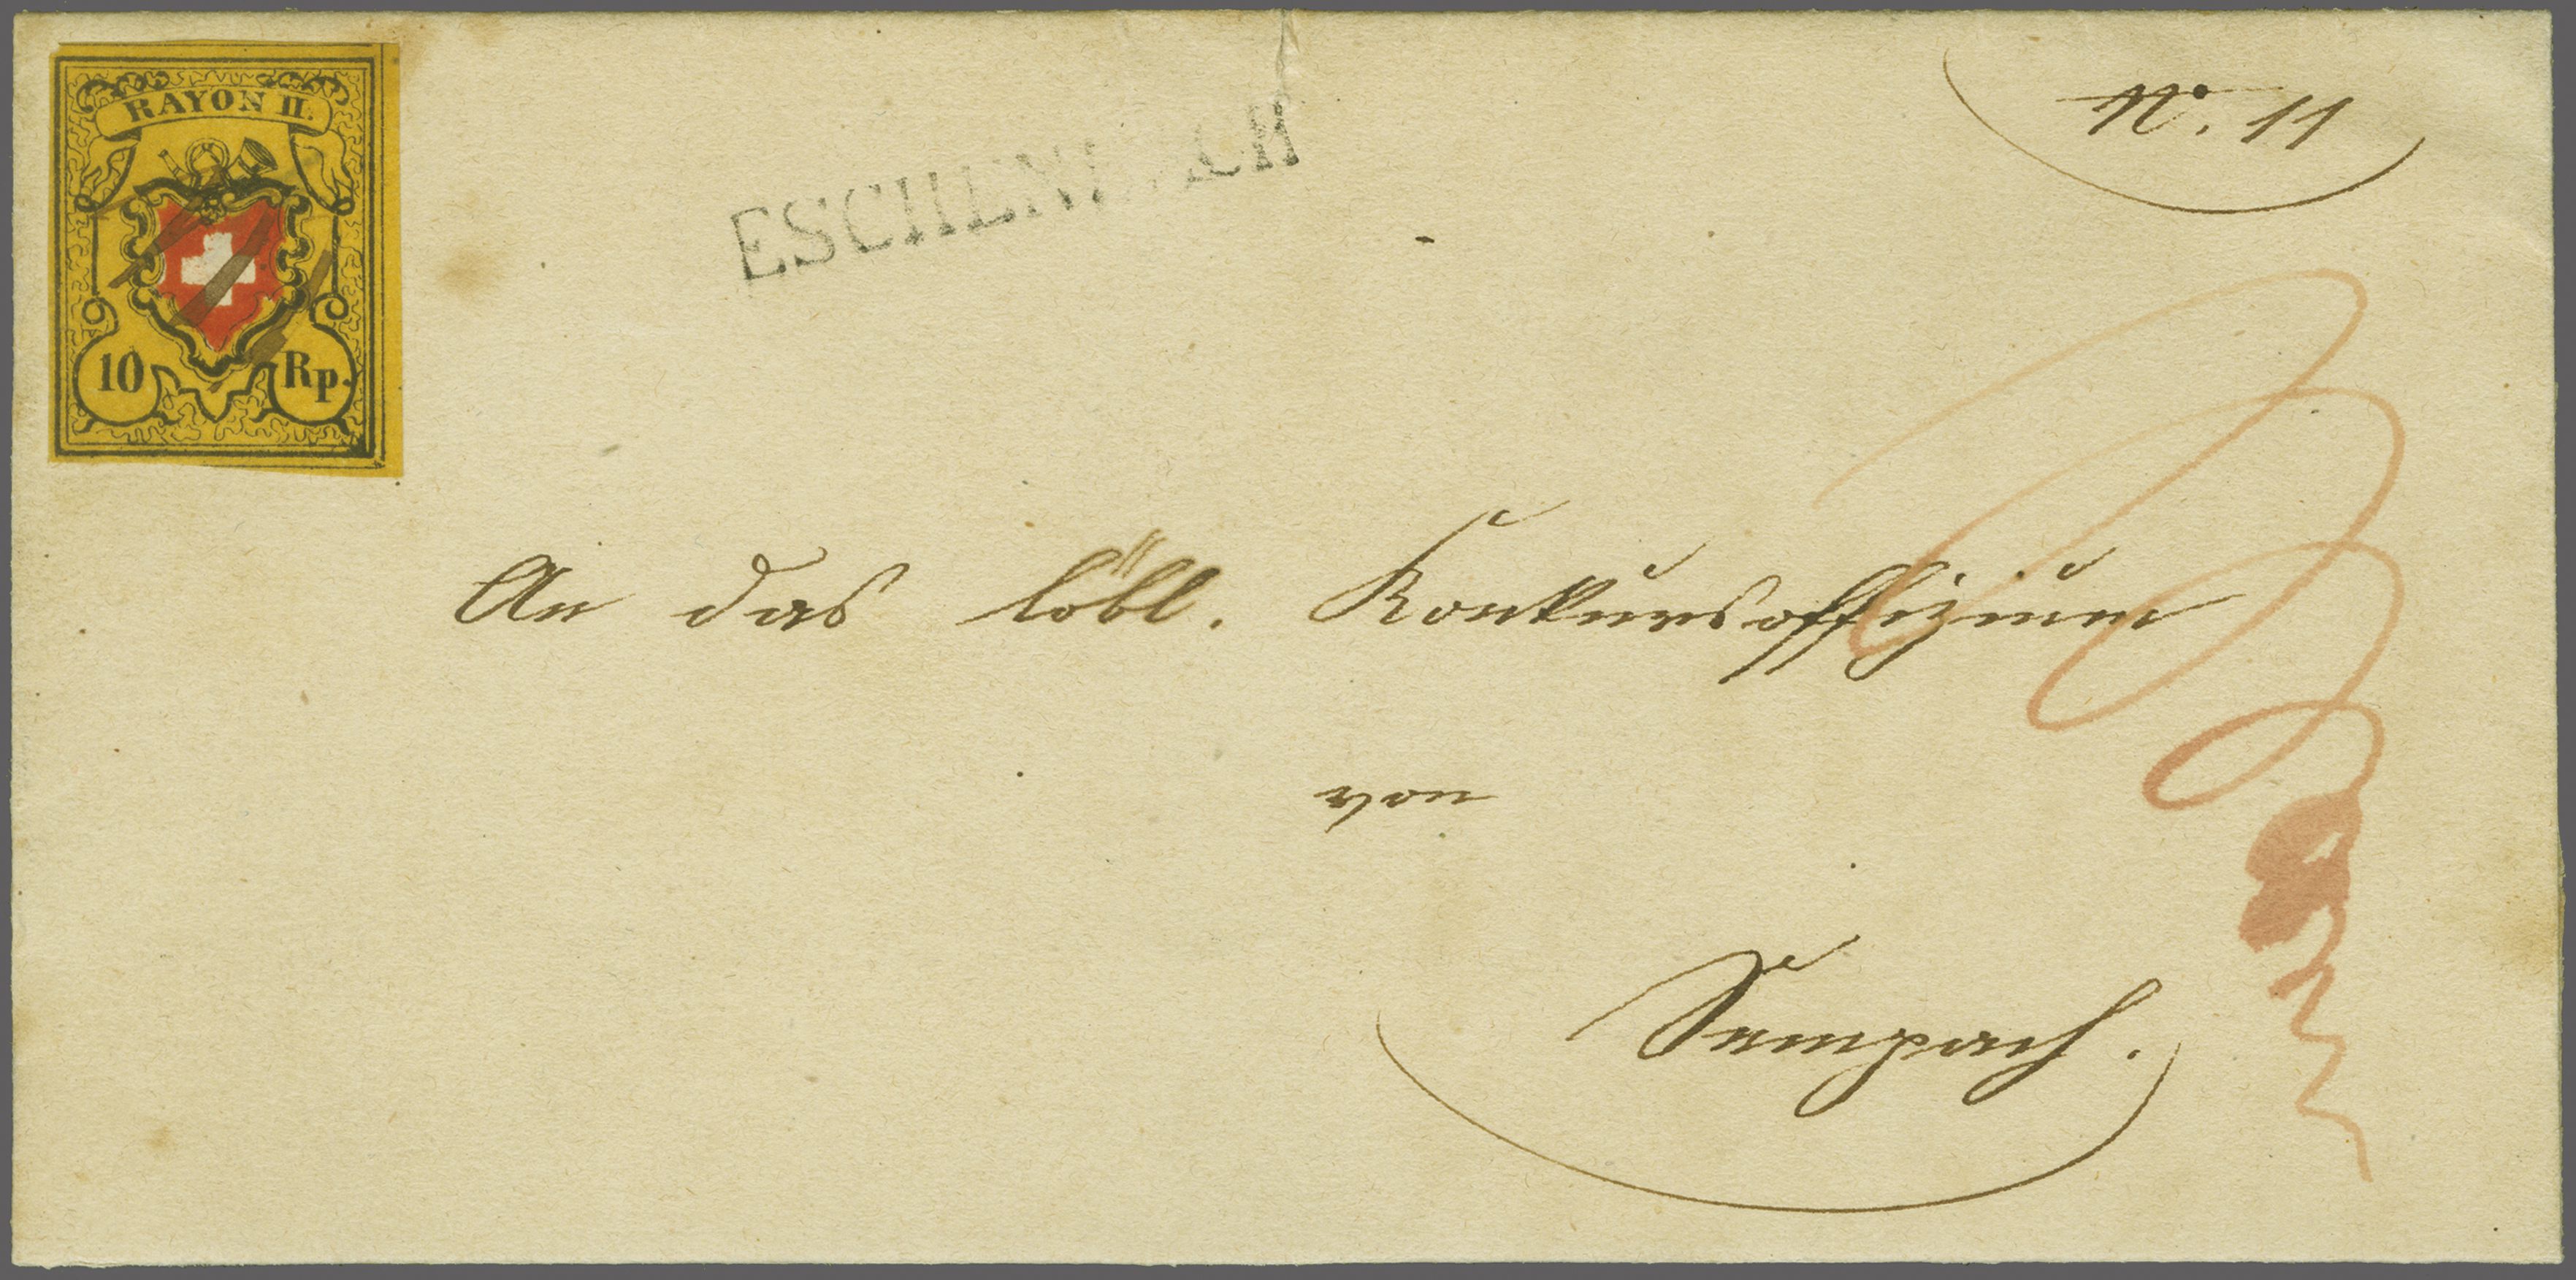 RAYON II.
10 Rp.
ESCHENBACH
No. 11
An das löbl. Konkursoffizium
von
Sempach.